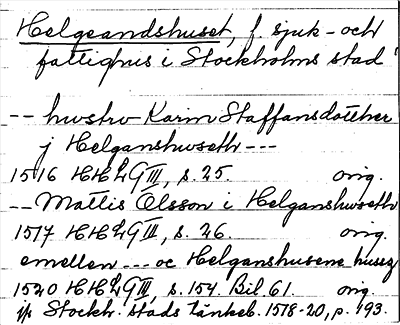 Helgeandshuset, f. sjuk- och
fattighus i Stockholms stad
-- hustrv Karin Staffansdotther
j Helganshwseth ---
1516 HHLG III, s. 25. orig.
-- Mattis Olsson i Helganshwseth
1517 HHLG III, s. 26. orig.
emellen --- oc Helganshusens
1520 HHLG III, s. 154. Bil. 61. orig.
Stockh. stads tänkeb. 1518-20, p. 193.